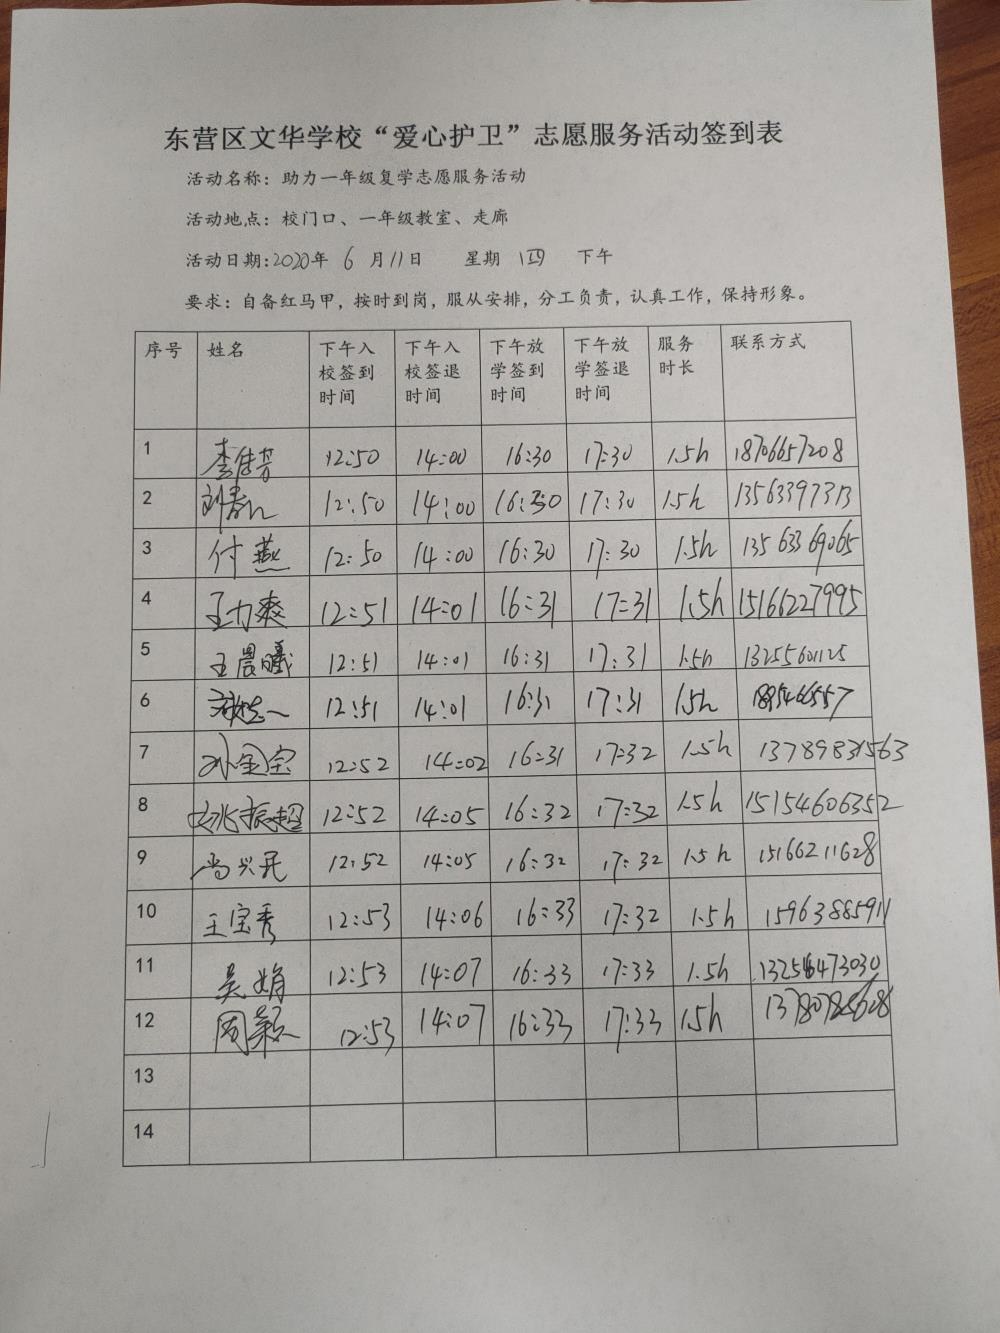 东营区文华学校“爱心护卫”志愿服务活动签到表
活动名称：助力一年级复学志愿服务活动
活动地点：校门口、一年级教室、走廊
活动日期:2020年 6 月11日 星期 四 下午
要求：自备红马甲，按时到岗，服从安排，分工负责，认真工作，保持形象。
序号 姓名 下午入校签到时间 下午入校签退时间 下午放学签到时间 下午放学签退时间 服务时长 联系方式
1 李佳芳 12:50 14:00 16:30 17:30 1.5h 18706657208
2 12:50 14:00 16:30 17:30 1.5h 13563397313
3 付燕 12:50 14:00 16:30 17:30 1.5h 13563369065
4 王力爽 12:51 14:01 16:31 17:31 1.5h 15166227995
5 王晨曦 12:51 14:01 16:31 17:31 1.5h 13255601125
6 12:51 14:01 16:31 17:31 1.5h
7 孙金宝 12:52 14:02 16:31 17:32 1.5h 13789831563
8 姚振超 12:52 14:05 16:32 17:32 1.5h 15154606352
9 尚兴民 12:52 14:05 16:32 17:32 1.5h 15166211628
10 王宝秀 12:53 14:06 16:33 17:32 1.5h 15963885911
11 吴娟 12:53 14:07 16:33 17:33 1.5h
12 周颖 12:53 14:07 16:33 17:33 1.5h
13
14